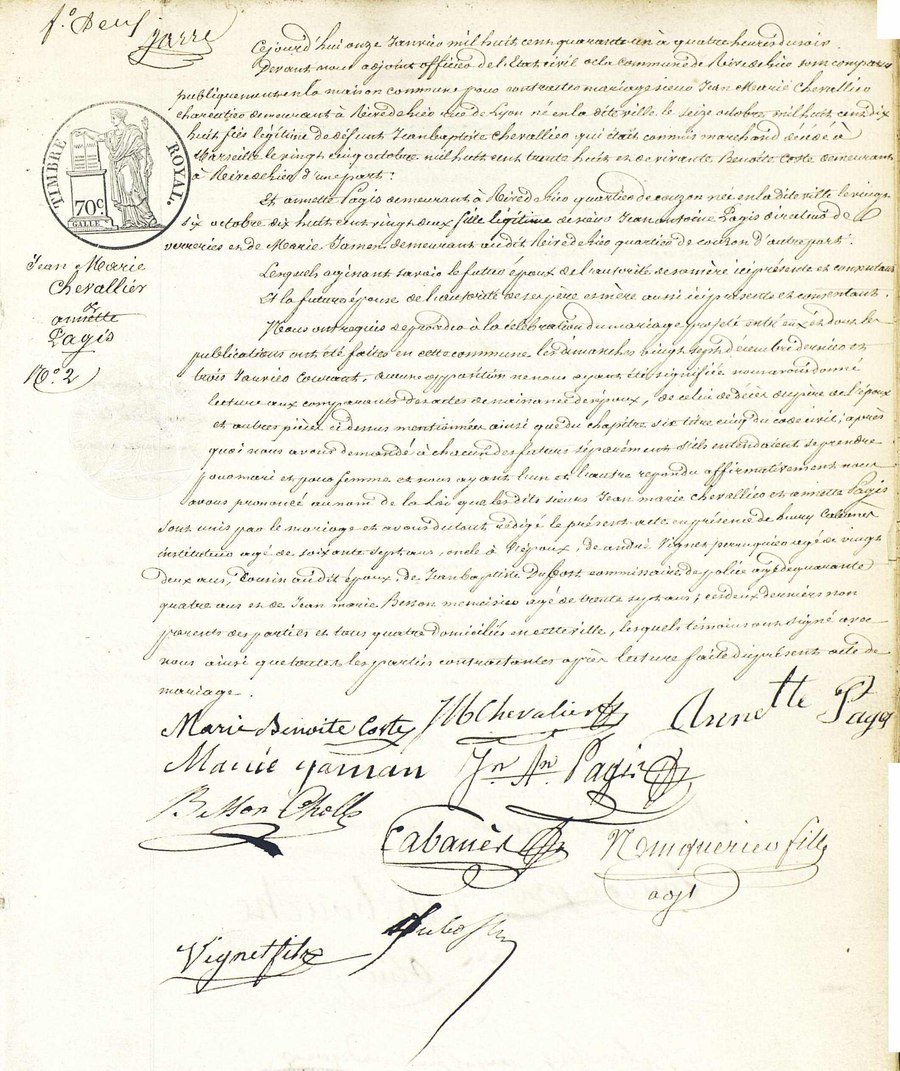 f.o Deux
Jarre
Cejourd'hui onze Janvier mil huit cent quarante un à quatre heures du soir
Devant nous adjoint officier de l'Etat civil de la commune de Rivedegier sont comparus
publiquement en la maison commune pour contracter mariage sieur Jean Marie Chevallier
charcutier demeurant à Rivedegier rue de Lyon né en la dite ville le seize octobre mil huit cent dix
huit fils légitime de défunt Jean baptiste Chevallier qui était commis marchand décédé à
Marseille le vingt cinq octobre mil huit cent trente huit et de vivante Benoite Coste demeurant
à Rivedegier d'une part.
Et annette Pagis demeurant à Rivedegier quartier de couzon née en la dite ville le vingt
six octobre dix huit cent vingt deux fille légitime de sieur Jean antoine Pagis directeur de
verreries et de Marie Jamen demeurant audit Rivedegier quartier de couzon d'autre part.
Lesquels agissant savoir le futur époux de l'autorité de sa mère ici présente et consentant
Et la future épouse de l'autorité de ses père et mère aussi ici présents et consentant.
Nous ont requis de procéder à la célébration du mariage projeté entr'eux et dont les
publications ont été faites en cette commune les dimanches vingt sept décembre dernier et
trois Janvier courant, aucune opposition ne nous ayant été signifiée nous avons donné
lecture aux comparants des actes de naissance des époux, de celui de décès du père de l'époux
et autres pièces ci dessus mentionnées ainsi que du chapitre six titre cinq du code civil; après
quoi nous avons demandé à chacun des futurs séparément s'ils entendaient se prendre
pour mari et pour femme et nous ayant l'un et l'autre répondu affirmativement nous
avons prononcé au nom de la Loi que les dits sieurs Jean marie Chevallier et annette Pagis
sont unis par le mariage et avons du tout rédigé le présent acte en présence de Cabanes
instituteur agé de soixante sept ans, oncle à l'époux, de andré Vignet perruquier agé de vingt
deux ans, Cousin audit époux, de Jean baptiste Dubost commissaire de police agé de quarante
quatre ans et de Jean marie Besson menuisier agé de trente sept ans; ces deux derniers non
parents des parties et tous quatre domiciliés en cette ville, lesquels témoins ont signé avec
nous ainsi que toutes les parties contractantes après lecture faite du présent acte de
mariage.
TIMBRE ROYAL.
70c.
GALLE
Jean Marie
Chevallier
&
annette
Pagis
No. 2
Marie Benoite Coste JM Chevalier Annette Pagis
Marie yaman Jn An Pagis
Besson
Cabanès fils
adjt
Vignet fils Dubost